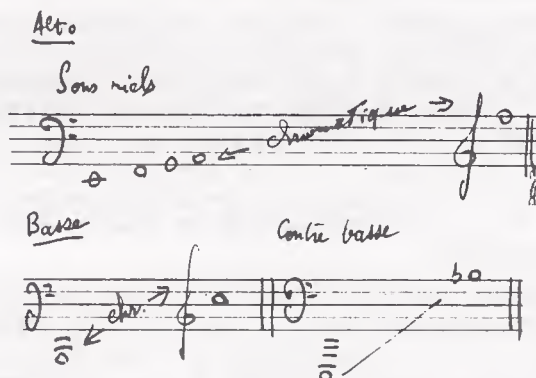 Alto
Sons réels
chromatique
Basse
Contre basse
chr.